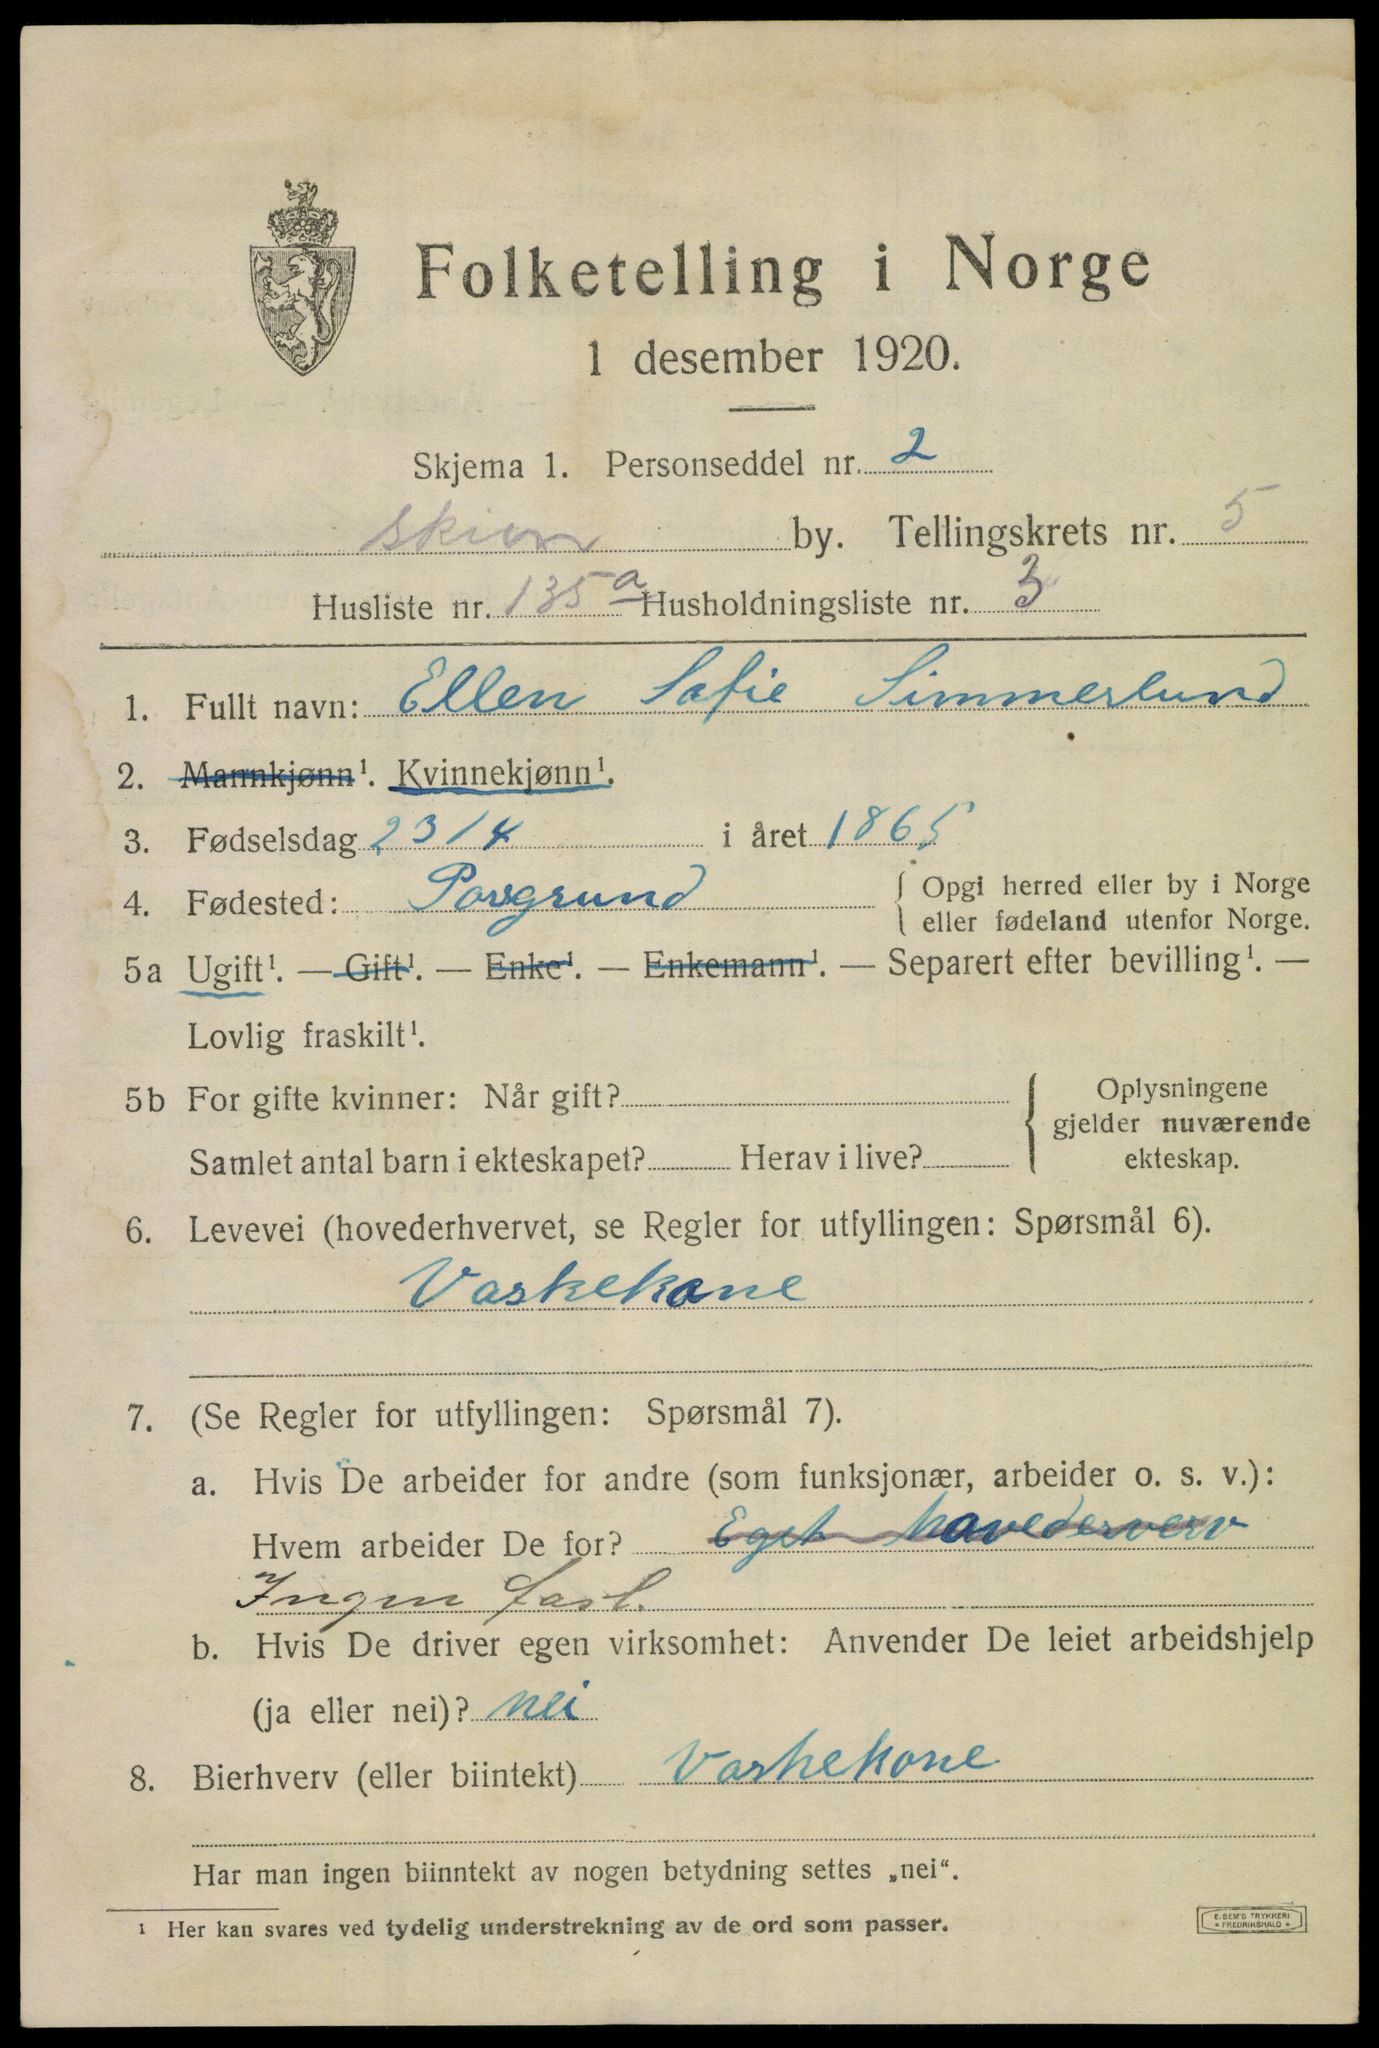 Folketelling i Norge
1 desember 1920.
Skjema 1. Personseddel nr. 2
Skien by. Tellingskrets nr. 5
Husliste nr. 135a Husholdningsliste nr. 3
1. Fullt navn: Ellen Sofie Simmerlund
2. Mannkjønn¹. Kvinnekjønn¹.
3. Fødselsdag 23/4 i året 1865
4. Fødested: Porsgrund { Opgi herred eller by i Norge
eller fødeland utenfor Norge.
5a Ugift¹. — Gift¹. — Enke¹. — Enkemann¹. — Separert efter bevilling¹. —
Lovlig fraskilt¹.
5b For gifte kvinner: Når gift? Oplysningene
gjelder nuværende
Samlet antal barn i ekteskapet? Herav i live? ekteskap.
6. Levevei (hovederhvervet, se Regler for utfyllingen: Spørsmål 6).
Vaskekone
7. (Se Regler for utfyllingen: Spørsmål 7).
a. Hvis De arbeider for andre (som funksjonær, arbeider o. s. v.):
Hvem arbeider De for? Eget hovederverv
Ingen fast.
b. Hvis De driver egen virksomhet: Anvender De leiet arbeidshjelp
(ja eller nei)? nei
8. Bierhverv (eller biintekt) Vaskekone
Har man ingen biinntekt av nogen betydning settes „nei“.
¹ Her kan svares ved tydelig understrekning av de ord som passer.
E. SEM'S TRYKKERI
• FREDRIKSHALD •